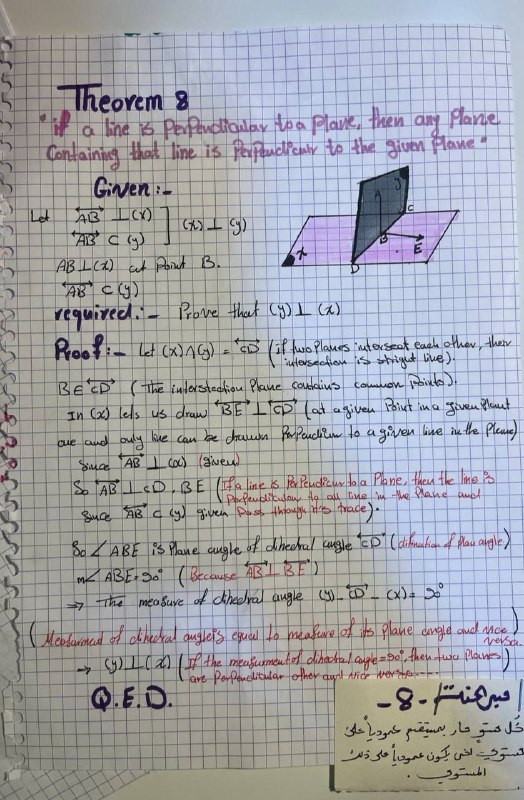 Theorem 8
"if a line is Perpendicular to a Plane, then any Plane
Containing that line is Perpendicur to the given Plane"
Given:-
Let AB ⊥ (x) ] (x) ⊥ (y)
AB ⊂ (y)
AB ⊥ (x) at Point B.
AB ⊂ (y)
required:- Prove that (y) ⊥ (x)
y
A
C
B
E
x
D
Proof:- Let (x) ∩ (y) = CD (if two Planes intersect each other, their
intersection is stright line).
B ∈ CD (The interstection Plane contains common Points).
In (x) lets us draw BE ⊥ CD (at a given Point in a given Plant
one and only line can be drawn Perpendicum to a given line in the Plane)
Since AB ⊥ (x) (given)
So AB ⊥ CD, BE (If a line is Perpendicur to a Plane, then the line is
Perpendicular to all line in the Plane and
Pass through it's trace).
Since AB ⊂ (y) given
So ∠ ABE is Plane angle of dihedral angle CD (difinction of Plan angle)
m∠ ABE = 90° (Because AB ⊥ BE)
⇒ The measure of dihedral angle (y) - CD - (x) = 90°
(Measurment of dihedral angle is equal to measure of its Plane angle and vice
versa.)
→ (y) ⊥ (x) (If the measurment of dihedral angle = 90°, then two Planes)
are Perpendicular other and vice versa
Q.E.D.
مبرهنة - 8 -
كل مستوٍ مار بمستقيم عمودياً على
مستوي اخر يكون عمودياً على ذلك
المستوي.